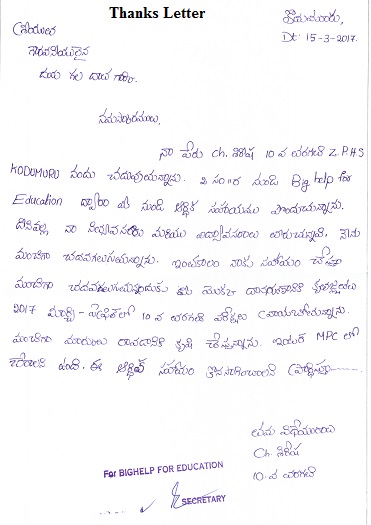 Thanks Letter
కోడుమూరు,
Dt: 15-3-2017.
శ్రీయుత
గౌరవనీయులైన
దయ గల దాత గారికి.
నమస్కారములు,
నా పేరు Ch. శిరీష 10 వ తరగతి Z.P.H.S
KODUMURU నందు చదువుచున్నాను. 2 సం॥ర నుండి Big help for
Education ద్వారా మీ నుండి ఆర్థిక సహాయము పొందుచున్నాను.
దీనివల్ల నా నిత్యావసరాలు మరియు విద్యావసరాలు తీరుచున్నవి. నేను
మంచిగా చదవగలుగుచున్నాను. ఇంతకాలం నాకు సహాయం చేస్తూ
మంచిగా చదవగలుగుతున్నందుకు మీ యొక్క దాతృత్వానికి కృతజ్ఞతలు
2017 మార్చి - ఏప్రిల్‌లో 10 వ తరగతి పరీక్షలు వ్రాయబోచున్నాను.
మంచిగా మార్కులు రావడానికి కృషి చేస్తున్నాను. ఇంటర్ MPC లో
చేరాలని ఉంది. ఈ ఆర్థిక సహాయం కొనసాగించాలని ప్రార్థిస్తూ
తమ విధేయురాలు
Ch. శిరీష
10 వ తరగతి
For BIGHELP FOR EDUCATION
SECRETARY